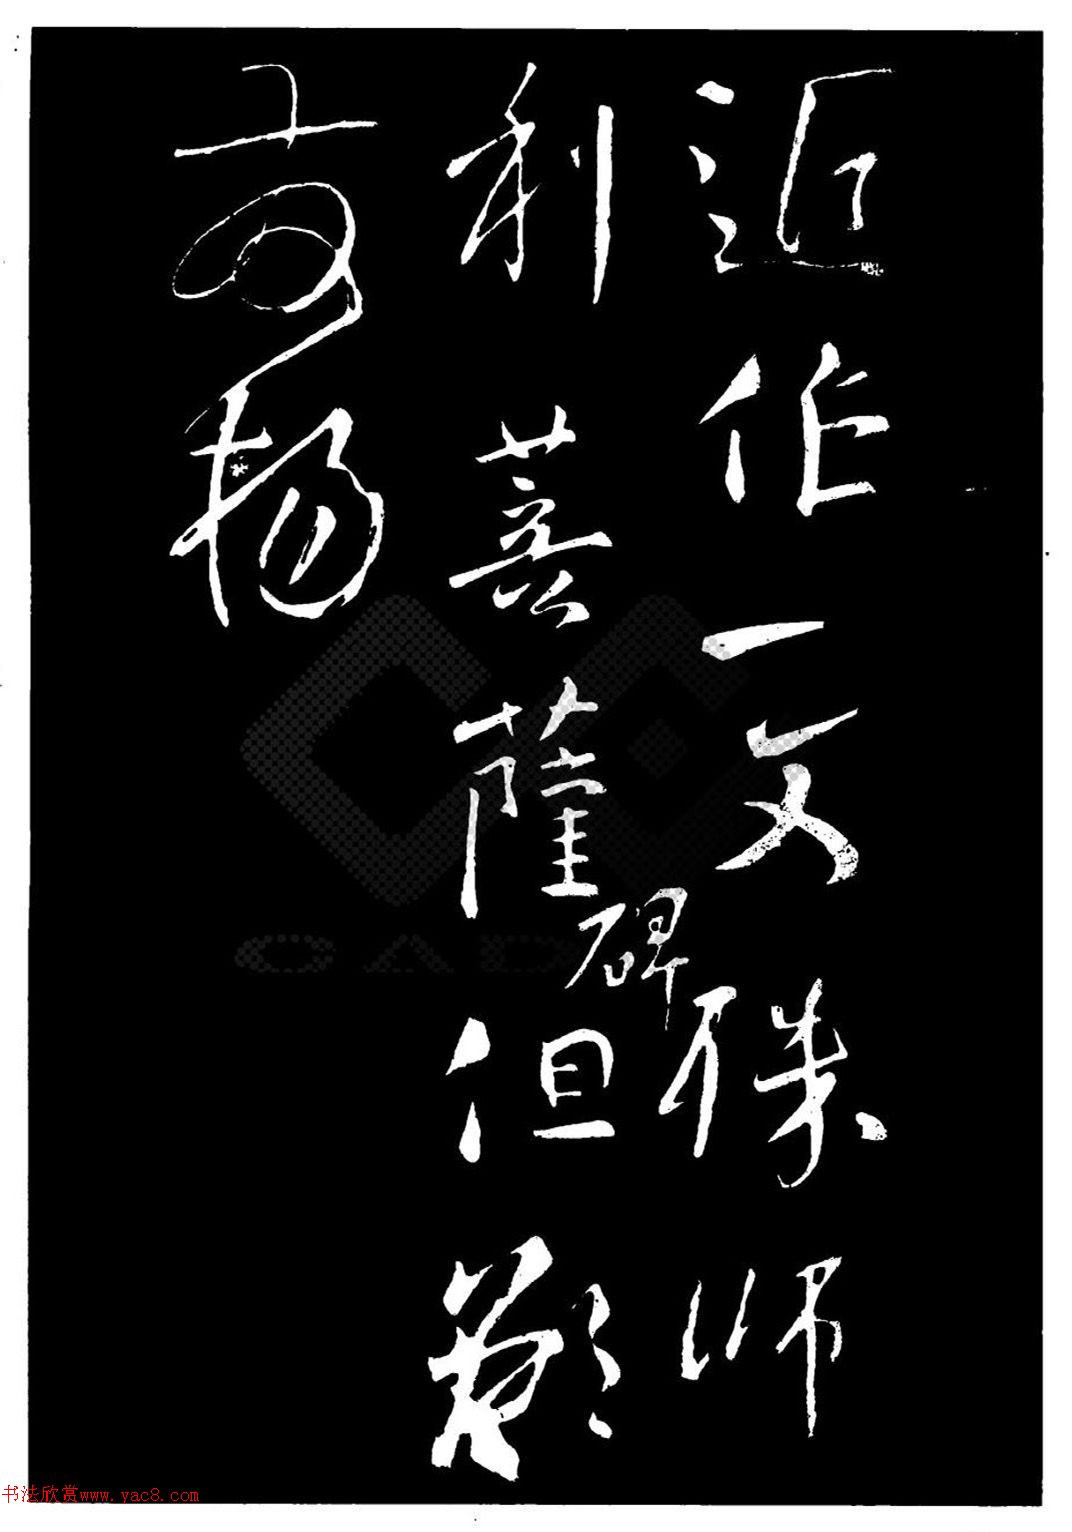 近作一文殊师
利菩薩碑但欲
發揚
书法欣赏www.yac8.com